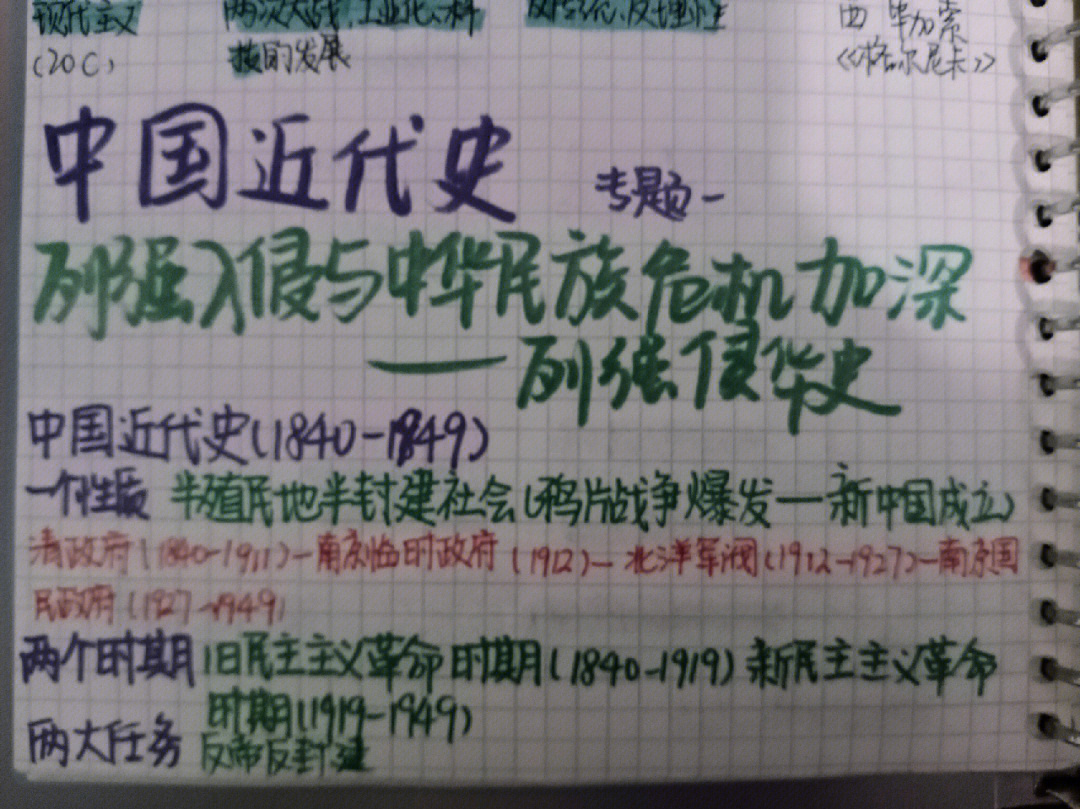 现代主义 两次大战,工业化、科 反传统、反理性 西 毕加索
(20C) 技的发展 《格尔尼卡》
中国近代史 专题一
列强入侵与中华民族危机加深
——列强侵华史
中国近代史(1840-1849)
一个性质 半殖民地半封建社会(鸦片战争爆发—新中国成立)
清政府(1840-1911)-南京临时政府(1912)-北洋军阀(1912-1927)-南京国
民政府(1927-1949)
两个时期 旧民主主义革命时期(1840-1919) 新民主主义革命
时期(1919-1949)
两大任务 反帝反封建